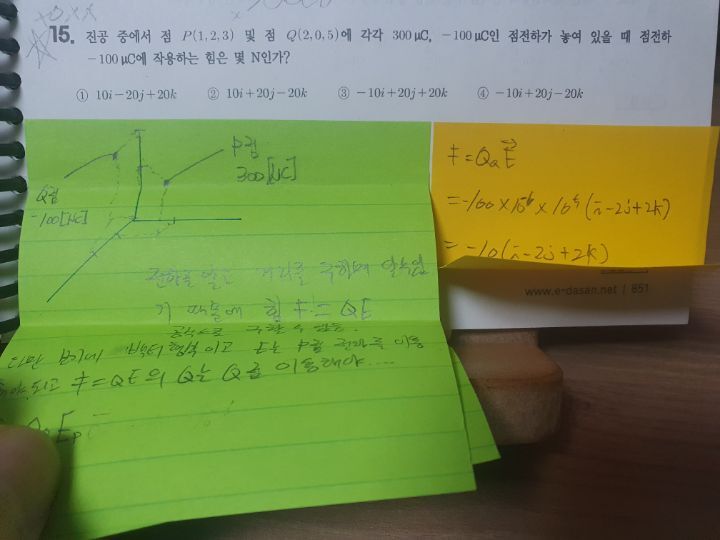 15. 진공 중에서 점 P(1, 2, 3) 및 점 Q(2, 0, 5)에 각각 300 μC, -100 μC인 점전하가 놓여 있을 때 점전하
-100 μC에 작용하는 힘은 몇 N인가?
① 10i-20j+20k ② 10i+20j-20k ③ -10i+20j+20k ④ -10i+20j-20k
P점
300[μC]
Q점
-100[μC]
F=QE
= -100×10⁻⁶×10⁵(i-2j+2k)
= -10(i-2j+2k)
www.e-dasan.net | 851
전하를 알고 거리를 구하며
기 때문에 힘 F=QE
공식으로 구할 수 있음.
다만 보기에 벡터 이고 E는 P점 전하를 이용
되고 F=QE의 Q는 Q를 이용해야....